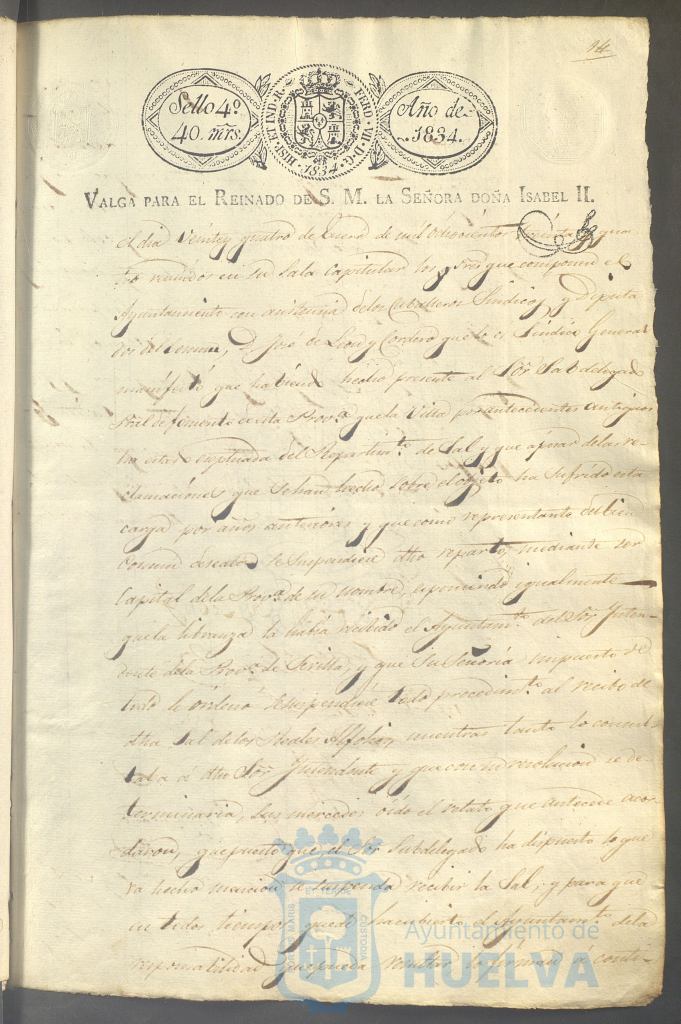 94
Sello 4º
40. mrs.
HISP. ET IND. R. FERD. VII. D. G. 1834.
Año de
1834.
VALGA PARA EL REINADO DE S. M. LA SEÑORA DOÑA ISABEL II.
El dia Veinte y quatro de Enero de mil ochocientos treinta y qua
tro reunidos en su Sala Capitular los Sres que componen el
Ayuntamiento con asistencia de los Caballeros Sindicos y Diputa
dos del Comun, D. José de Leon y Cordero que lo es Sindico General
manifestó que habiendo hecho presente al Sor Subdelegado
Pral de fomento de esta Prova. que la Villa por antecedentes antiguos
esceptuada del Repartimto. de Sal y que apesar de las re-
clamaciones que se han hecho sobre el objeto ha sufrido esta
carga por años anteriores y que como representante del bien
Comun deseaba se suspendiese dho reparto, mediante ser
Capital de la Prova. de su nombre, esponiendo igualmente
que la libranza la habia recibido el Ayuntamto. del Sor Inten-
dente de la Prova. de Sevilla, y que Su Señoria impuesto de
todo le ordenó se suspendiese todo procedimto. al recibo de
dha Sal de los Reales Alfolies mientras tanto lo consul-
taba á dho Sor Intendente y que con su resolucion se de-
terminaria, Sus mercedes oido el relato que antecede acor-
daron, que puesto que el Sor Subdelegado ha dispuesto lo que
va hecho mencion se suspenda recibir la Sal, y para que
en todos tiempos quede á cubierto el Ayuntamto. de la
responsabilidad que pueda resultar á conti-
Ayuntamiento de
HUELVA